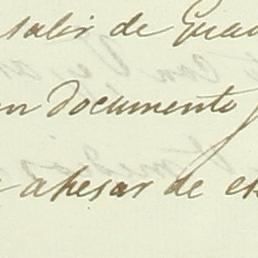 salir de Guad
un documento
apesar de es